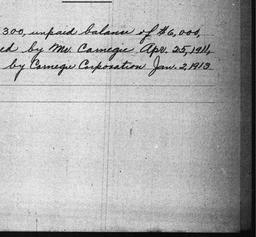 300, unpaid balance of $6,000,
ed by Mr. Carnegie Apr. 25, 1911,
by Carnegie Corporation Jan. 2, 1913